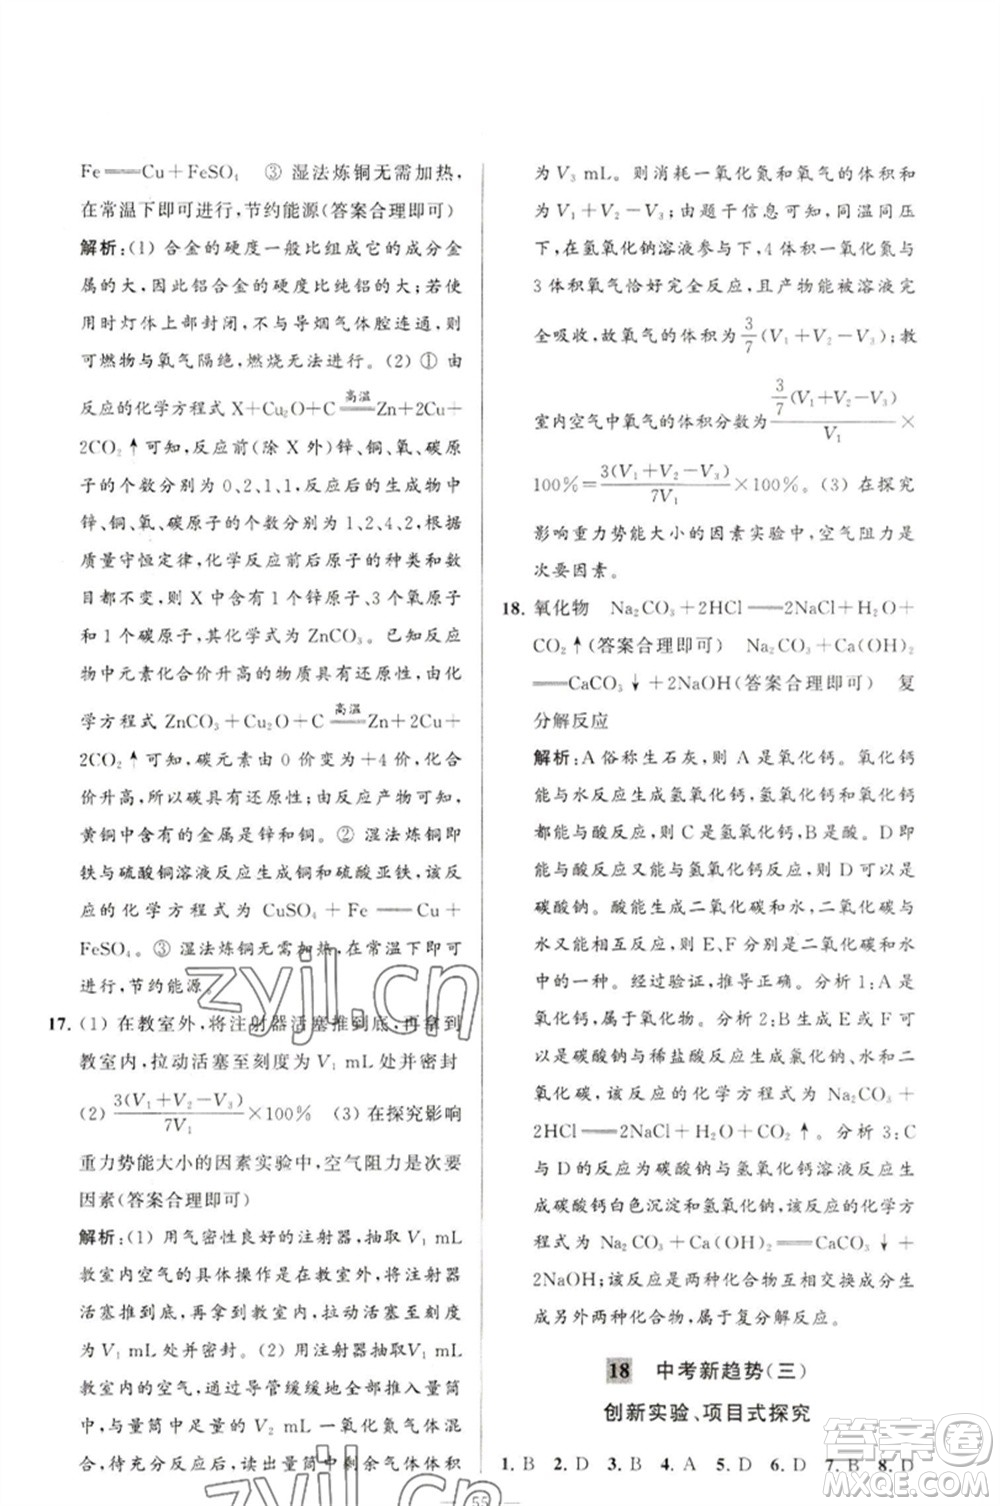 Fe══Cu+FeSO₄ ③ 湿法炼铜无需加热,
在常温下即可进行,节约能源(答案合理即可)
解析:(1) 合金的硬度一般比组成它的成分金
属的大,因此铝合金的硬度比纯铝的大;使
用时灯体上部封闭,不与导烟气体腔连通,则
可燃物与氧气隔绝,燃烧无法进行。(2) ① 由
反应的化学方程式 X+Cu₂O+C══(高温)Zn+2Cu+
2CO₂↑可知,反应前(除 X 外)锌、铜、氧、碳原
子的个数分别为 0、2、1、1,反应后的生成物中
锌、铜、氧、碳原子的个数分别为 1、2、4、2,根据
质量守恒定律,化学反应前后原子的种类和数
目都不变,则 X 中含有 1 个锌原子、3 个氧原
子和 1 个碳原子,其化学式为 ZnCO₃。已知反应
物中元素化合价升高的物质具有还原性,由化
学方程式 ZnCO₃+Cu₂O+C══(高温)Zn+2Cu+
2CO₂↑可知,碳元素由 0 价变为+4 价,化合
价升高,所以碳具有还原性;由反应产物可知,
黄铜中含有的金属是锌和铜。② 湿法炼铜即
铁与硫酸铜溶液反应生成铜和硫酸亚铁,该反
应的化学方程式为 CuSO₄+Fe══Cu+
FeSO₄。③ 湿法炼铜无需加热,在常温下即可
进行,节约能源。
17. (1) 在教室外,将注射器活塞推到底,再拿到
教室内,拉动活塞至刻度为 V₁ mL 处并密封
(2) 3(V₁+V₂−V₃)/7V₁ ×100% (3) 在探究影响
重力势能大小的因素实验中,空气阻力是次要
因素(答案合理即可)
解析:(1) 用气密性良好的注射器,抽取 V₁ mL
教室内空气的具体操作是在教室外,将注射器
活塞推到底,再拿到教室内,拉动活塞至刻度
为 V₁ mL 处并密封。(2) 用注射器抽取 V₁ mL
教室内的空气,利用导管缓缓地全部推入量筒
中,与量筒中原有的一氧化氮气体混
合,待充分反应后,读出量筒中剩余气体体积
为 V₃ mL。则消耗一氧化氮和氧气的体积和
为 V₁+V₂−V₃;由题干信息可知,同温同压
下,在氢氧化钠溶液参与下,4 体积一氧化氮与
3 体积氧气恰好完全反应,且产物能被溶液完
全吸收,故氧气的体积为 3/7 (V₁+V₂−V₃);教
室内空气中氧气的体积分数为 3/7 (V₁+V₂−V₃)/V₁ ×
100%= 3(V₁+V₂−V₃)/7V₁ ×100%。(3) 在探究
影响重力势能大小的因素实验中,空气阻力是
次要因素。
18. 氧化物 Na₂CO₃+2HCl══2NaCl+H₂O+
CO₂↑(答案合理即可) Na₂CO₃+Ca(OH)₂
══CaCO₃↓+2NaOH(答案合理即可) 复
分解反应
解析:A 俗称生石灰,则 A 是氧化钙。氧化钙
能与水反应生成氢氧化钙,氢氧化钙和氧化钙
都能与酸反应,则 C 是氢氧化钙,B 是酸。D 即
能与酸反应又能与氢氧化钙反应,所以 D 可以是
碳酸钠。酸能生成二氧化碳和水,二氧化碳和水
能相互反应,所以 E、F 分别是二氧化碳和水
中的一种。经验证,推导正确。分析 1:A 是
氧化钙,属于氧化物。分析 2:B 与 D 的反应可以
是碳酸钠与稀盐酸反应生成氯化钠、水和二氧
化碳,该反应的化学方程式为 Na₂CO₃+
2HCl══2NaCl+H₂O+CO₂↑。分析 3:C
与 D 的反应为碳酸钠与氢氧化钙溶液反应生
成碳酸钙白色沉淀和氢氧化钠,该反应的化学方
程式为 Na₂CO₃+Ca(OH)₂══CaCO₃↓+
2NaOH;该反应是两种化合物互相交换成分生
成另外两种化合物,属于复分解反应。
18 中考新趋势(三)
创新实验、项目式探究
1. B 2. D 3. B 4. A 5. D 6. D 7. B 8. D
55
zyjl.cn
zyjl.cn
答案圈
MXQE.COM